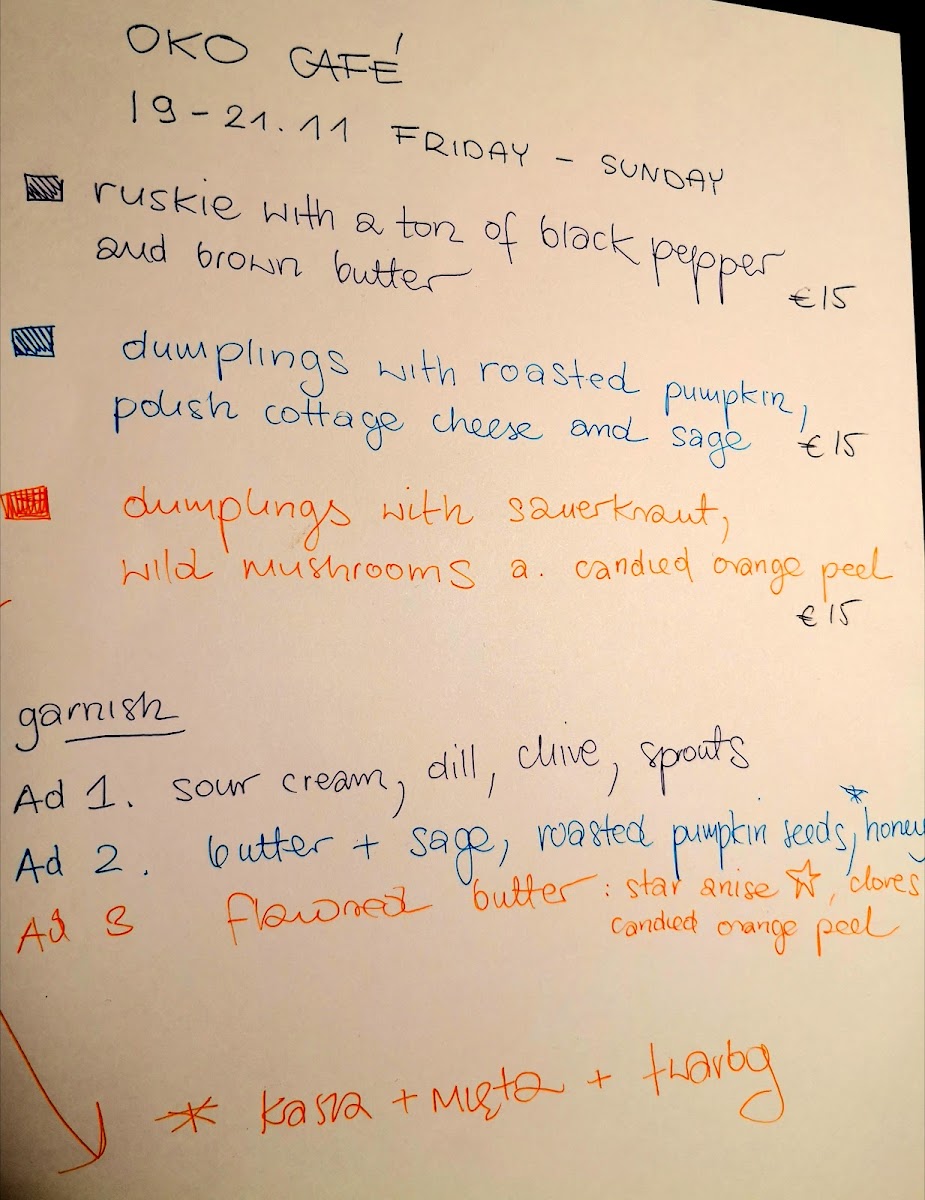 OKO CAFÉ
19-21.11 FRIDAY - SUNDAY
ruskie with a ton of black pepper
and brown butter
€15
dumplings with roasted pumpkin,
polish cottage cheese and sage €15
dumplings with sauerkraut,
wild mushrooms a. candied orange peel
€15
garnish
Ad 1. sour cream, dill, chive, sprouts
Ad 2. butter + sage, roasted pumpkin seeds,* honey
Ad 3 flavored butter: star anise ☆, cloves
candied orange peel
* kasza + mięta + twaróg